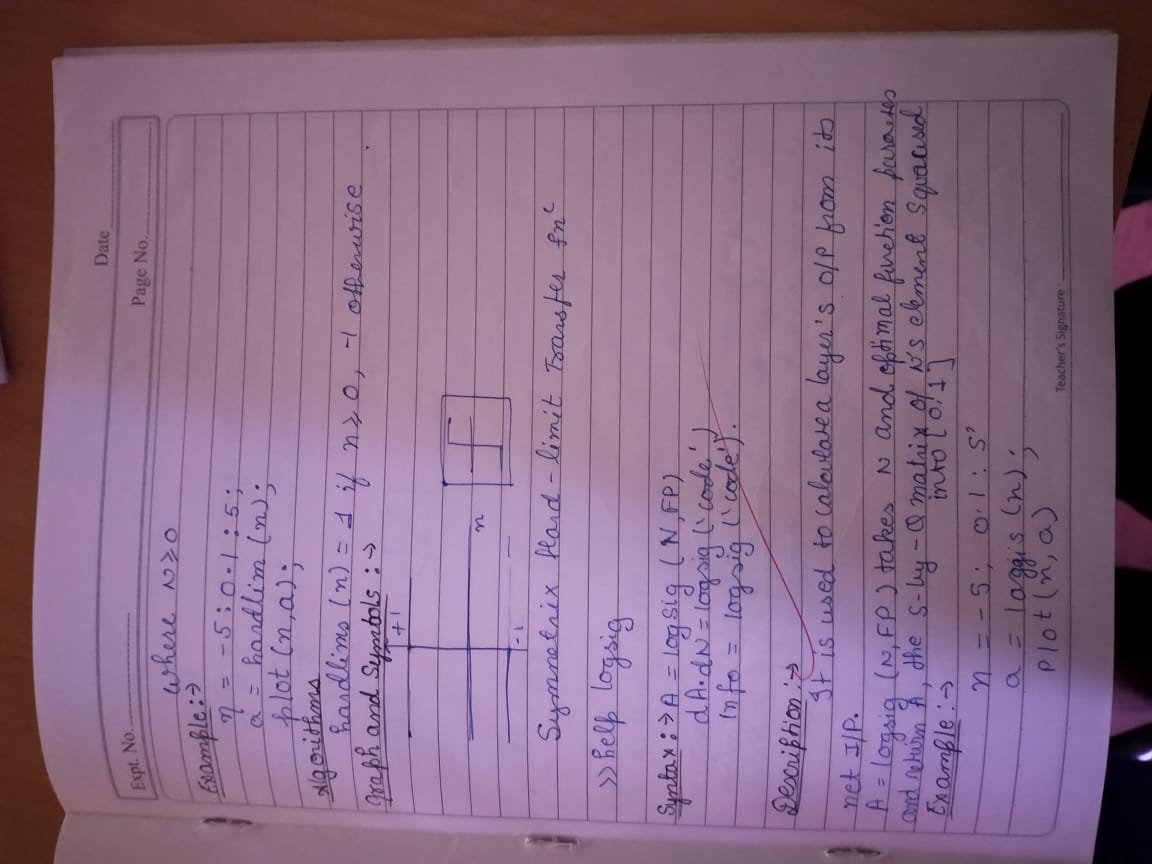 Date
Expt. No.
Page No.
where N≥0
Example:->
n = -5:0.1:5;
a = hardlim (n);
plot (n, a);
Algorithms
hardlims (n) = 1 if n≥0, -1 otherwise
graph and Symbols:->
+1
n
-1
Symmetrix Hard-limit Transfer fnc
>>help logsig
Syntax:-> A = logsig (N, FP)
dA.dN = logsig ('code')
info = logsig ('code').
Description:->
It is used to calculatea layer's O/P from its
net I/P.
A = logsig (N, FP) takes N and optimal function
and return A, the S-by-Q matrix of N's element
into [0,1]
Example:->
n = -5; 0.1:5'
a = (n);
plot (n, a)
Teacher's Signature: